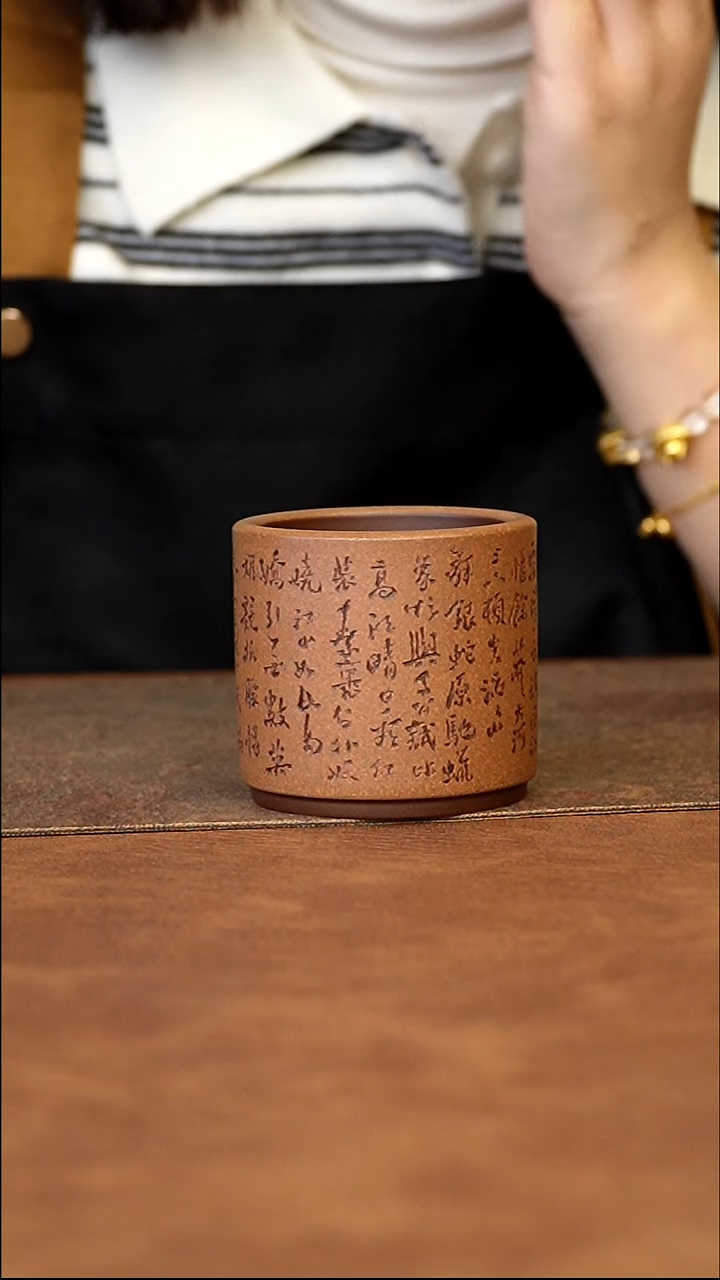 惟餘莽莽大河
上下頓失滔滔山
舞銀蛇原馳蠟
象欲與天公試比
高須晴日看紅
裝素裹分外妖
嬈江山如此多
嬌引無數英
雄競折腰惜